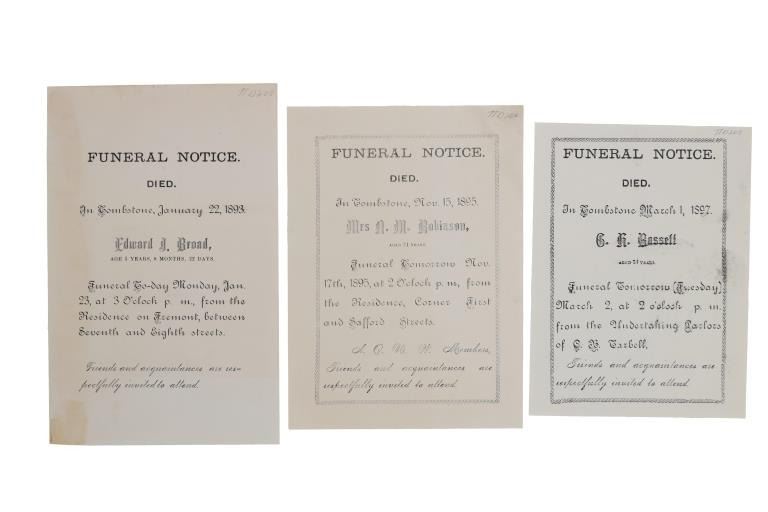 FUNERAL NOTICE.
DIED.
In Tombstone, January 22, 1893.
Edward J. Broad,
AGE 5 YEARS, 8 MONTHS, 22 DAYS.
Funeral To-day Monday, Jan.
23, at 3 O'cloch p. m., from the
Residence on Fremont, between
Seventh and Eighth streets.
Friends and acquaintances are res-
pectfully invited to attend.
FUNERAL NOTICE.
DIED.
In Tombstone, Nov. 15, 1895.
Mrs N. M. Robinson,
AGED 71 YEARS.
Funeral Tomorrow Nov.
17th, 1895, at 2 O'cloch p. m., from
the Residence, Corner First
and Safford Streets.
A. O. U. W. Members,
Friends and acquaintances are
respectfully invited to attend.
FUNERAL NOTICE.
DIED.
In Tombstone March 1, 1897.
YEARS.
Funeral Tomorrow (Tuesday)
March 2, at 2 o'cloch p. m.
from the Undertaking Parlors
of C. B. Tarbell.
Friends and acquaintances are
respectfully invited to attend.